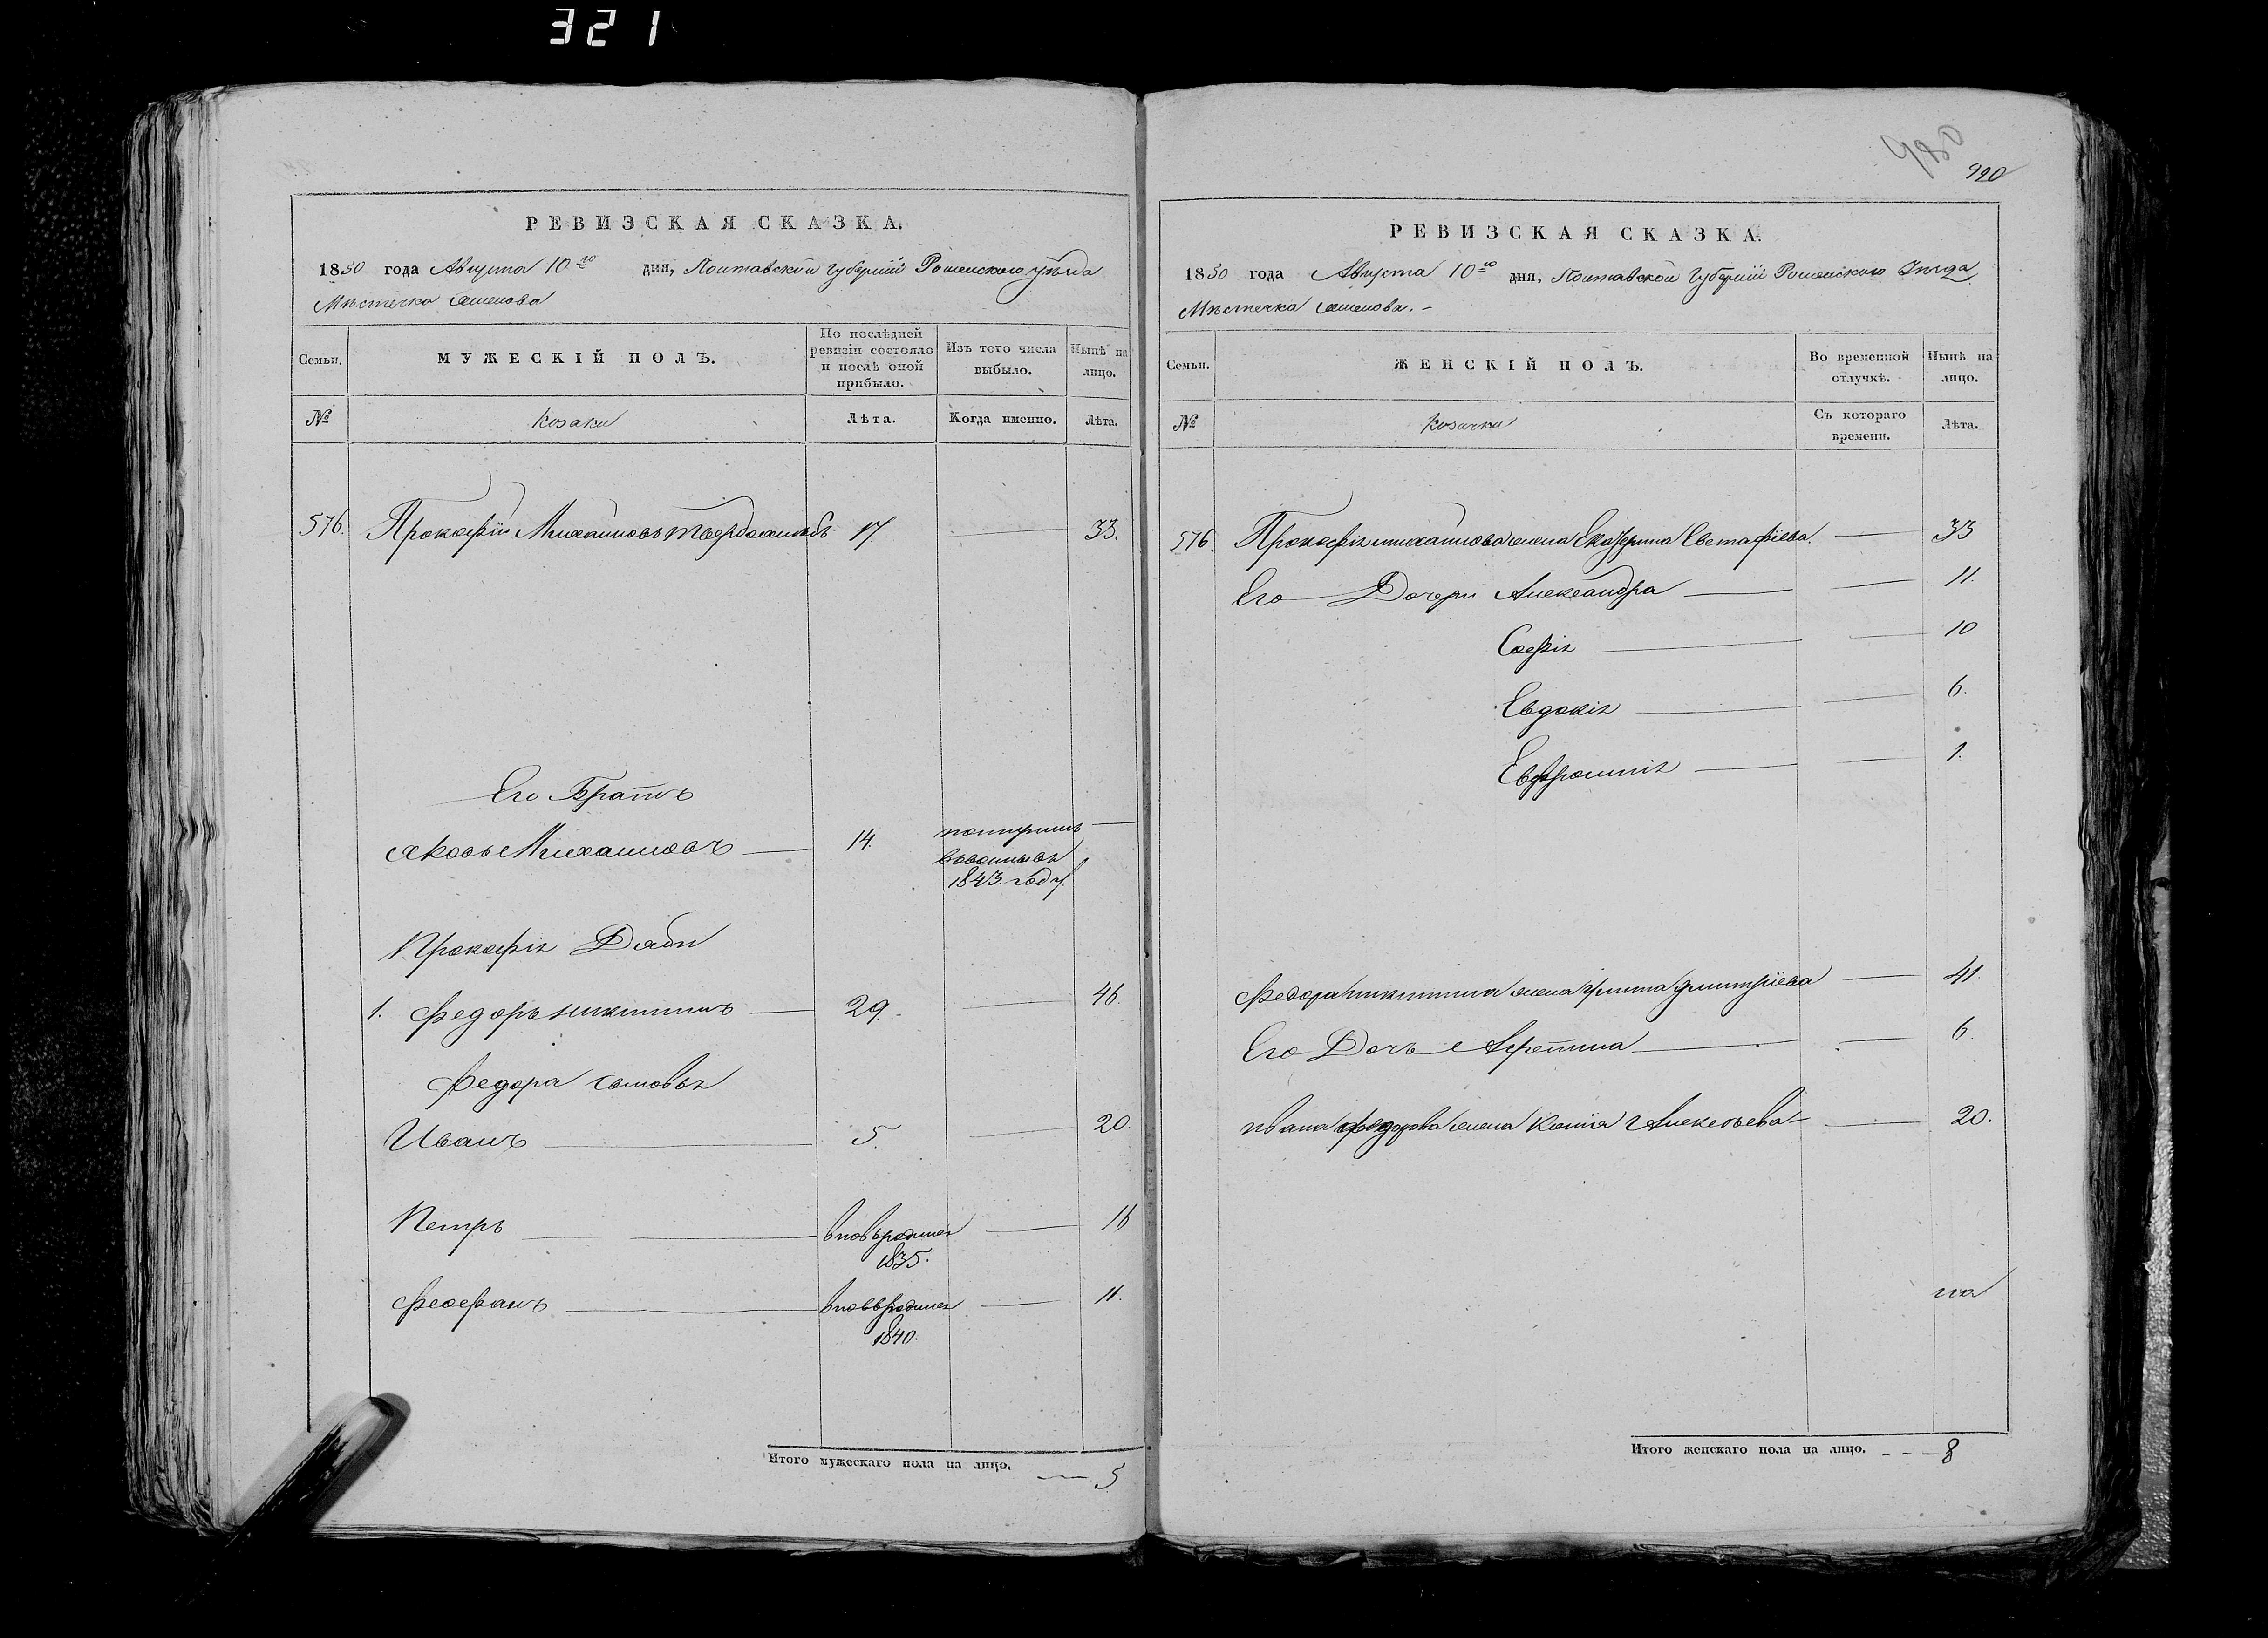 321
РЕВИЗСКАЯ СКАЗКА.
1850 года Августа 10го дня, Полтавской губернiи Роменского уѣзда
Мѣстечко Смелова
Семьи.
МУЖЕСКІЙ ПОЛЪ.
По послѣдней ревизіи состояло и послѣ оной прибыло.
Изъ того числа выбыло.
Нынѣ на лицо.
№
Козаки
Лѣта.
Когда именно.
Лѣта.
576. Прокофiй Михайловъ 17. 33.
Его Братъ
Яковъ Михайловъ 14.
1843. году
Прокофiя Дяди
1. Федоръ Никитинъ 29. 46.
Федора сыновья
Иванъ 5. 20.
Петръ вновьродился 16
1835.
Феофанъ вновьродился 11.
1840.
Итого мужескаго пола на лицо. 5
980
990
РЕВИЗСКАЯ СКАЗКА.
1850 года Августа 10го дня, Полтавской Губернiи Роменского уѣзда
Мѣстечка Смелова.
Семьи.
ЖЕНСКІЙ ПОЛЪ.
Во временной отлучкѣ.
Нынѣ на лицо.
№
Козачки
Съ котораго времени.
Лѣта.
576. Прокофiя михайлова жена Екатерина Евстафiева. 33
Его Дочери Александра 11.
Софiя 10
Евдокiя 6.
1.
Федора никитина жена Ирина Дмитрiева 41.
Его Дочь 6
Ивана федорова жена Алексѣева 20.
на
Итого женскаго пола на лицо. 8